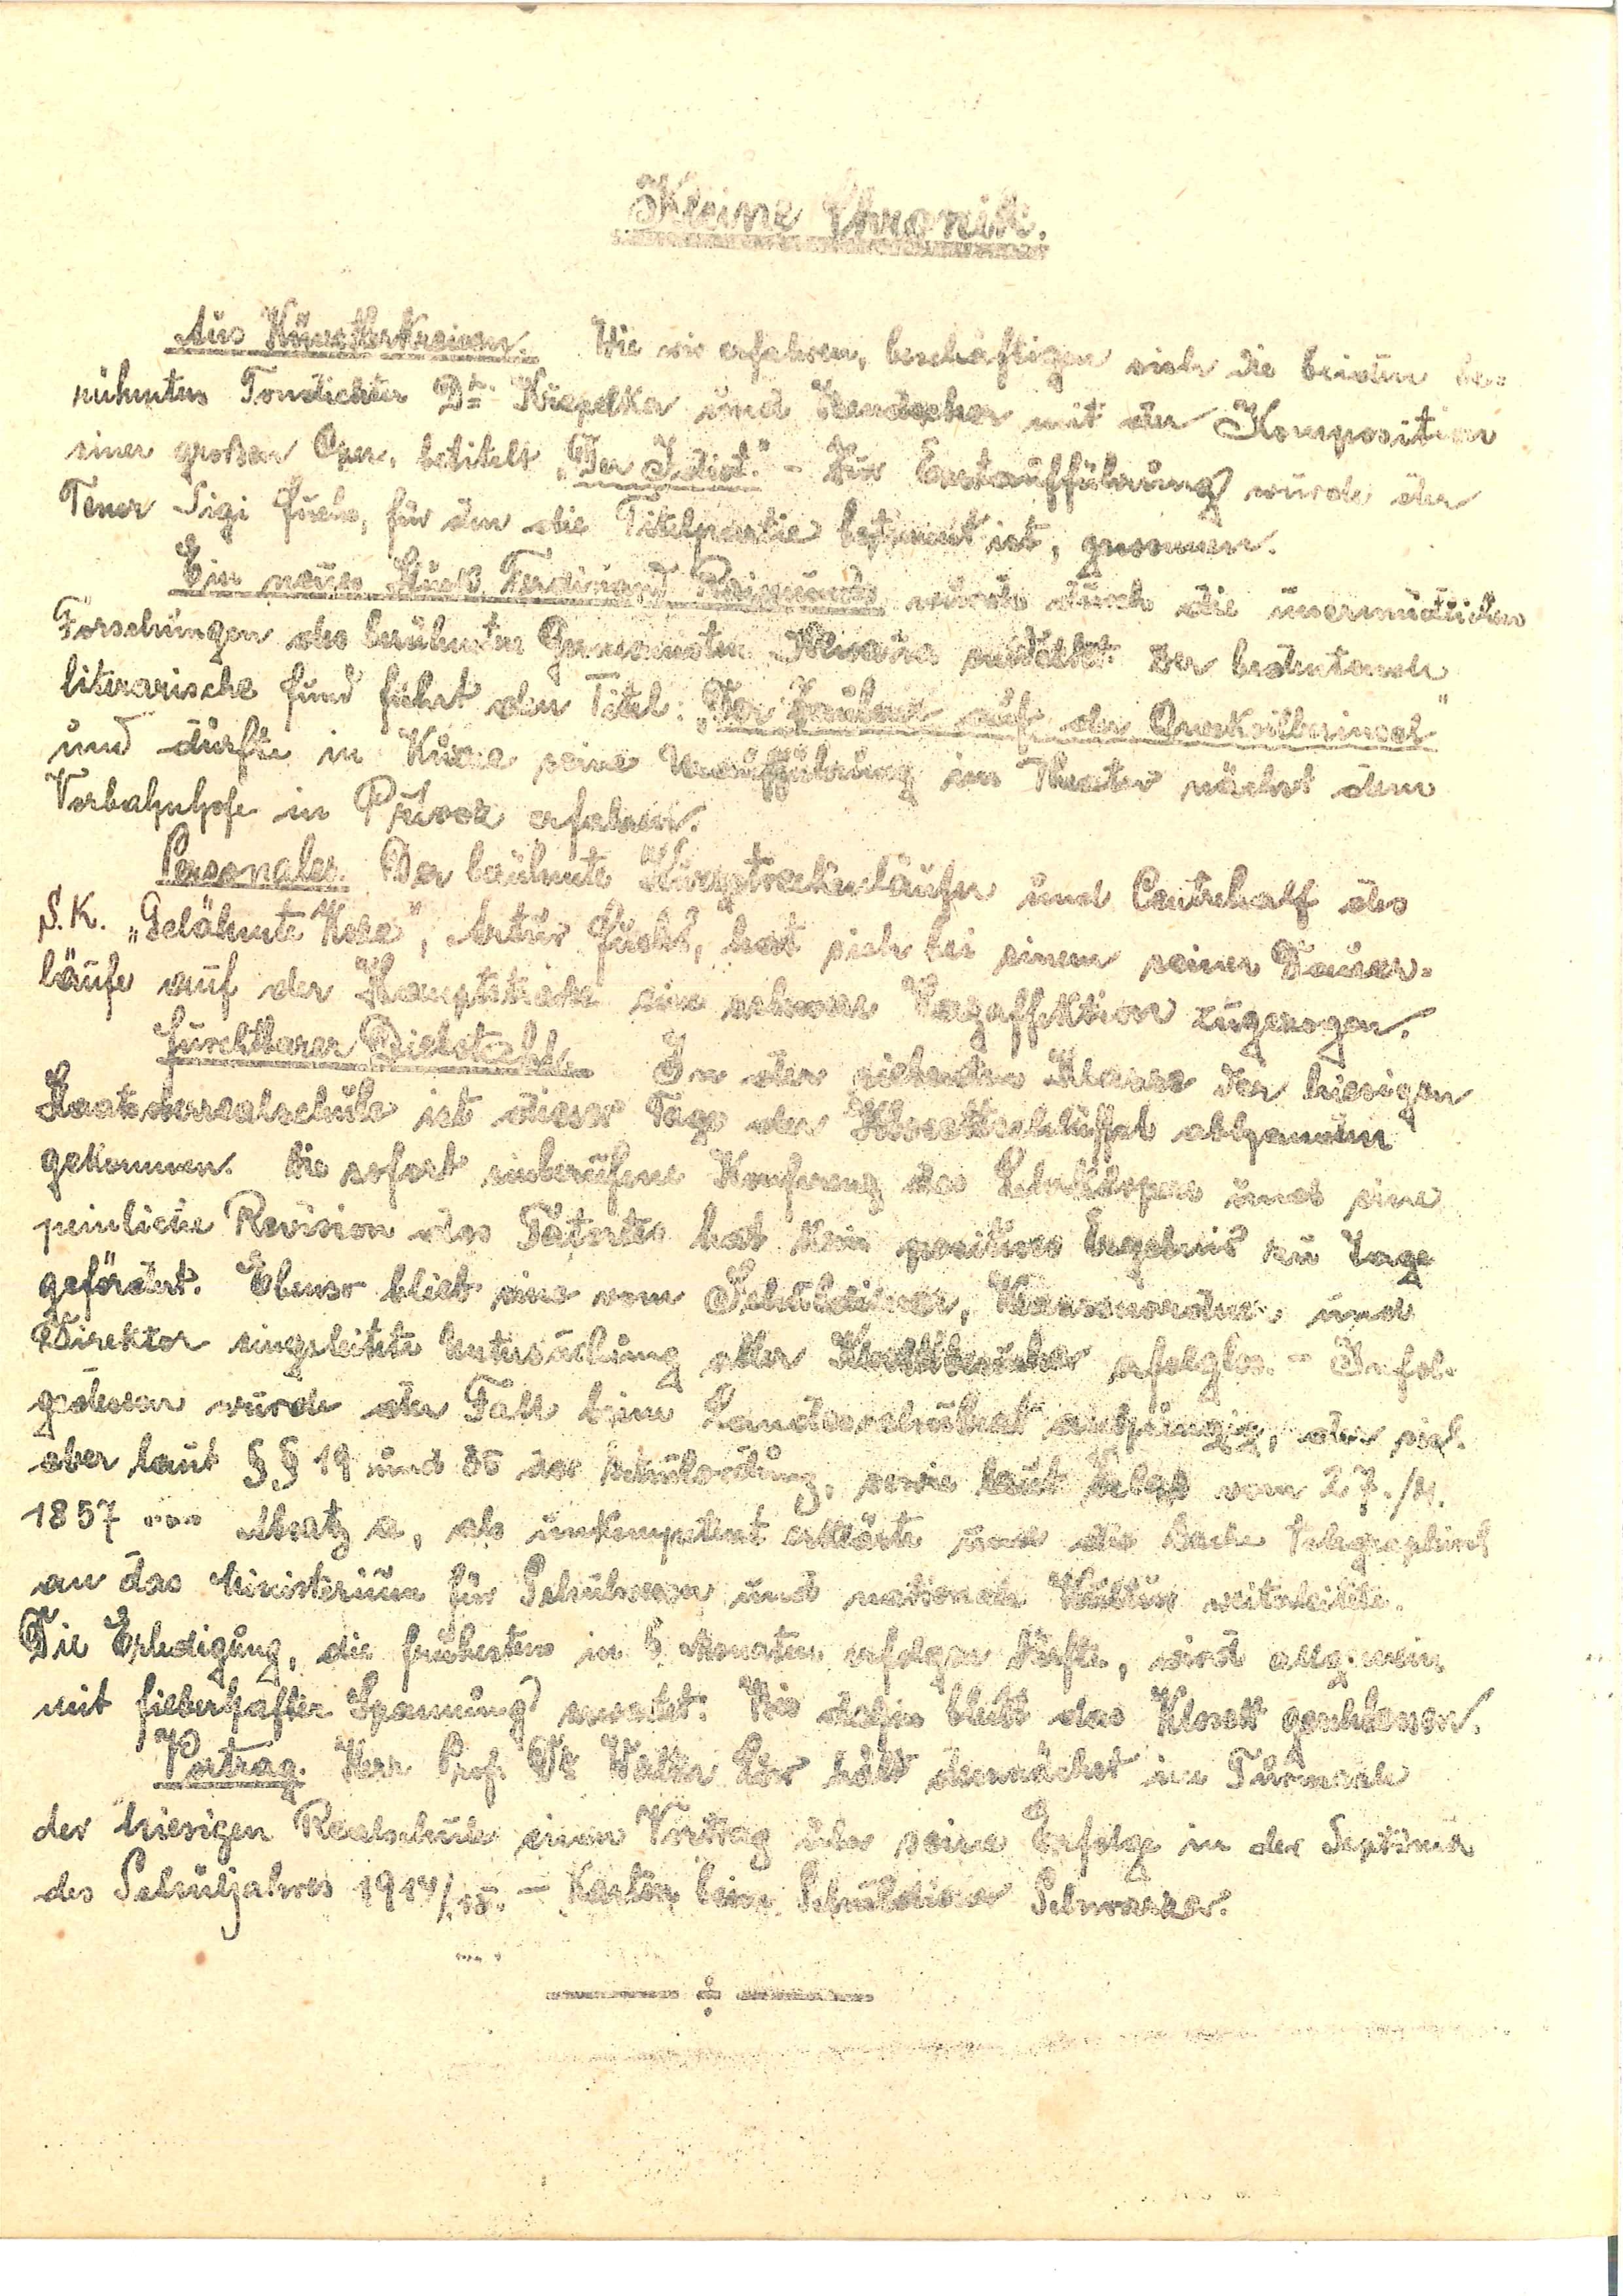 Kleine Chronik.
Aus Künstlerkreisen. Wie wir erfahren, beschäftigen sich die beiden be-
rühmten Tondichter Dr. und mit der Komposition
einer großen Oper, betitelt „Der Idiot." - Zur Erstaufführung wurde der
Tenor Sigi Fuchs, für den die Titelpartie bestimmt ist, gewonnen.
Ein neues Stück Ferdinand Raimunds wurde durch die unermüdlichen
Forschungen des berühmten Germanisten entdeckt. Der bedeutende
literarische Fund führt den Titel: „Der Zauberer auf der Quecksilberinsel"
und dürfte in Kürze seine Uraufführung im Theater nächst dem
Vorbahnhofe in Přivoz erfahren.
Personales. Der berühmte Kurzstreckenläufer und Centrehalf des
S.K. „Gelähmte Kree", Artur Fuchs, hat sich bei einem seiner Dauer-
läufe auf der Hauptstraße eine schwere zugezogen.
Furchtbarer Diebstahl. In der siebenten Klasse der hiesigen
Staatsoberrealschule ist dieser Tage der Klosettschlüssel abhanden
gekommen. Die sofort einberufene Konferenz des Lehrkörpers und eine
peinliche Revision des Tatortes hat kein positives Ergebnis zu Tage
gefördert. Ebenso blieb eine vom Schuldiener, Klassenordner und
Direktor eingeleitete Untersuchung aller erfolglos. - Infol-
gedessen wurde der Fall beim Landesschulrat anhängig, der sich
aber laut §§ 19 und 35 der Schulordung, sowie laut Erlaß vom 27./II.
1857 .... Absatz a, als unkompetent erklärte und die Sache telegraphisch
an das Ministerium für Schulwesen und nationale Kultur weiterleitete.
Die Erledigung, die frühestens in 5 Monaten erfolgen dürfte, wird allgemein
mit fieberhafter Spannung erwartet. Bis dahin bleibt das Klosett geschlossen.
Vortrag. Herr Prof. Dr. Walter Löw hält demnächst im Turnsaale
der hiesigen Realschule einen Vortrag über seine Erfolge in der Septima
des Schuljahres 1914/15. - Karten beim Schuldiener Schwarzer.